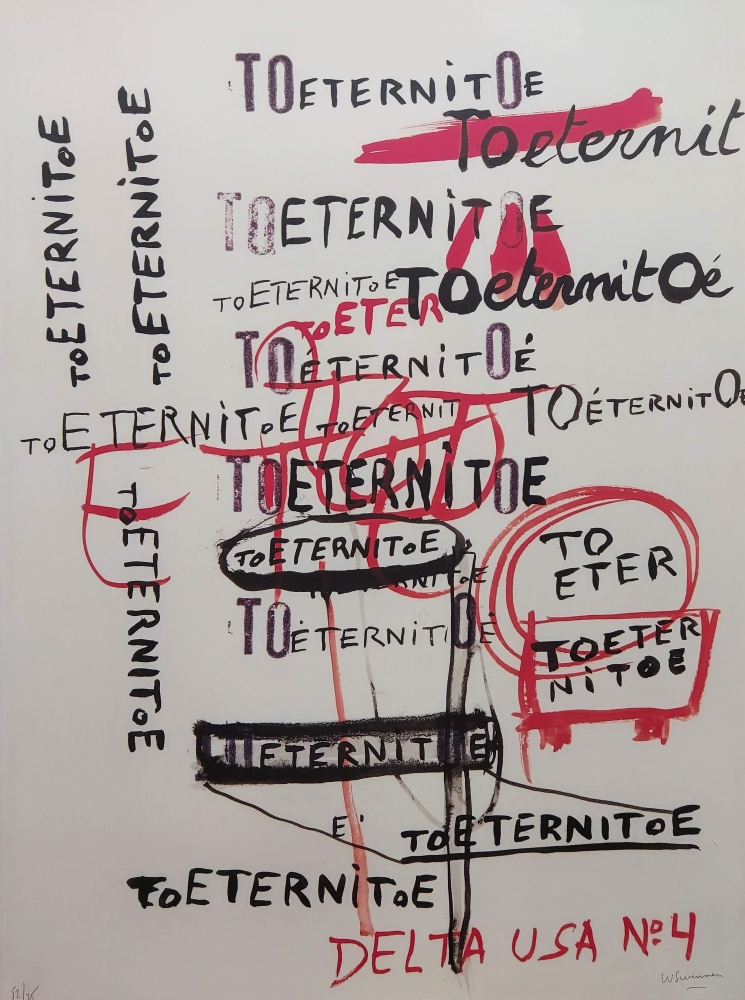 TOETERNiTOE
Toeternit
TOETERNiTOE
TOETERNiTOE
TOeternitOé
TOETERNiTOE
TOETERNiTOE
TOETER
TOÉTERNiTOÉ
TOÉTERNiTOE
TOETERNiTOE
TOETERNIT
TOETERNiTOE
TOETERNiTOE
TO
ETER
TOETERNITOE
TOETER
NiTOE
TOÉTERNiTOÉ
TOETERNITOE
E'
TOETERNITOE
TOETERNiTOE
DELTA USA Nº4
52/75
WSwennen